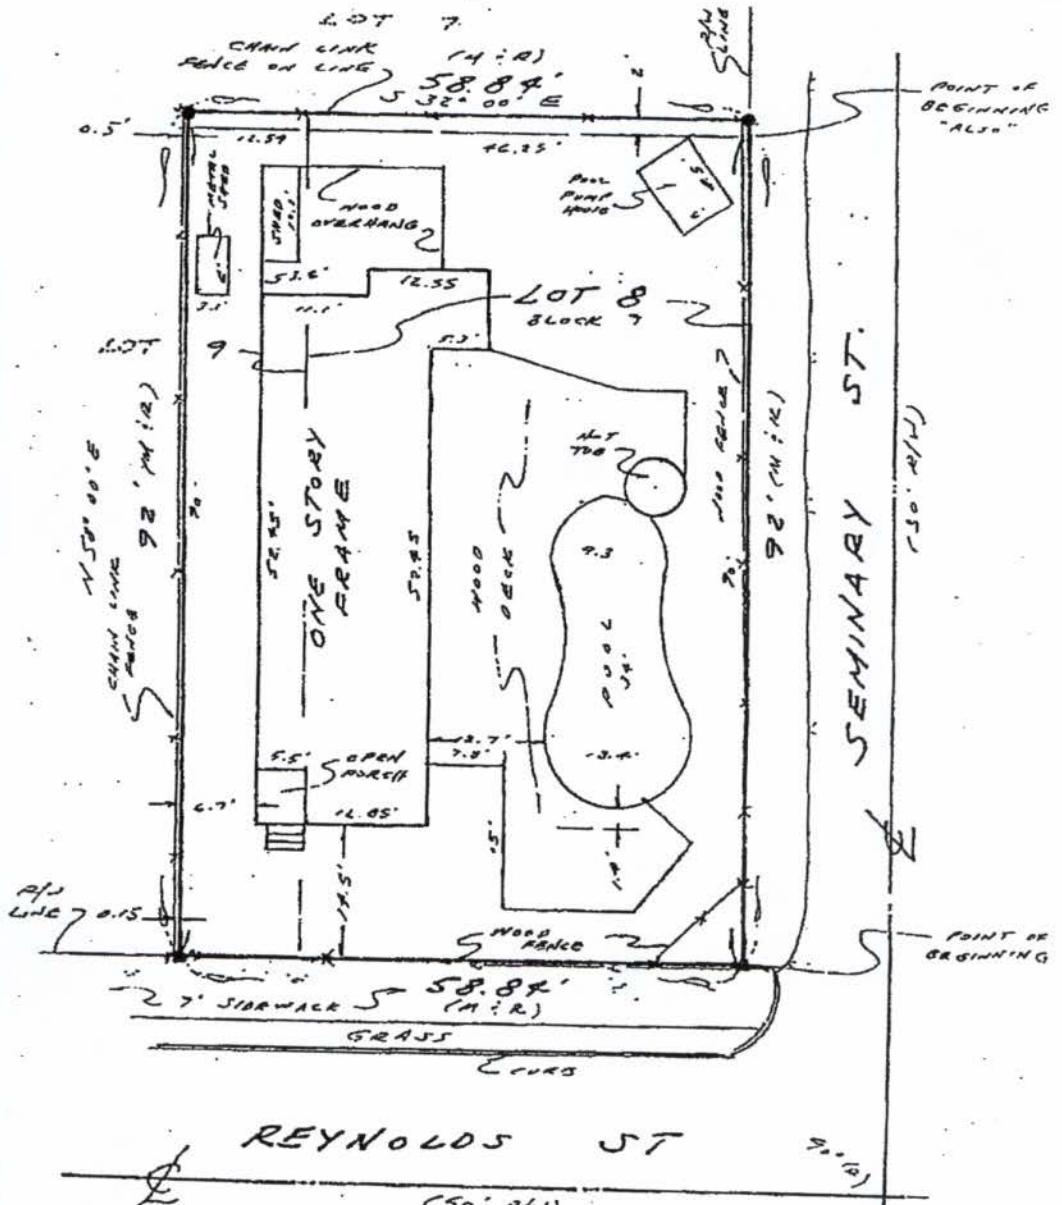 LOT 7
CHAIN LINK
FENCE ON LINE
(M & R)
58.84'
S 32° 00' E
R/W
LINE
2'
POINT OF
BEGINNING
"ALSO"
0.5'
12.59
46.25'
METAL
SHED
SHED
WOOD
OVERHANG
POOL
PUMP
HOUSE
12.55
LOT 8
BLOCK 7
LOT 9
5.3'
92' (M & R)
N 58° 00' E
CHAIN LINK
FENCE
90'
52.45'
ONE STORY
FRAME
52.45
WOOD
DECK
HOT
TUB
9.3
POOL
34'
13.4'
WOOD FENCE
90'
92' (M & R)
SEMINARY ST.
(50' R/W)
12.7'
7.8'
5.5'
OPEN
PORCH
6.7'
16.05'
15'
14.5'
R/W
LINE
0.15
WOOD
FENCE
POINT OF
BEGINNING
7' SIDEWALK
58.84'
(M & R)
GRASS
CURB
REYNOLDS ST
90° (R)
(50' R/W)